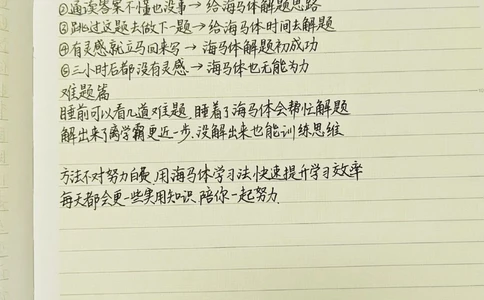 ②通读答案不懂也没事→给海马体解题思路
③跳过这题去做下一题→给海马体时间去解题
④有灵感就立马回来写→海马体解题初成功
⑤三小时后都没有灵感→海马体也无能为力
难题篇
睡前可以看几道难题,睡着了海马体会帮忙解题
解出来了离学霸更近一步.没解出来也能训练思维
方法不对努力白费,用海马体学习法,快速提升学习效率
每天都会更一些实用知识,陪你一起努力.